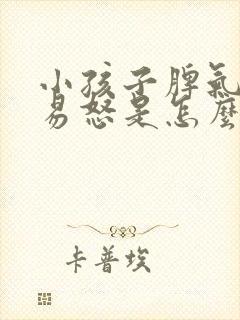 小孩子脾氣
易怒是怎麼
卡普埃